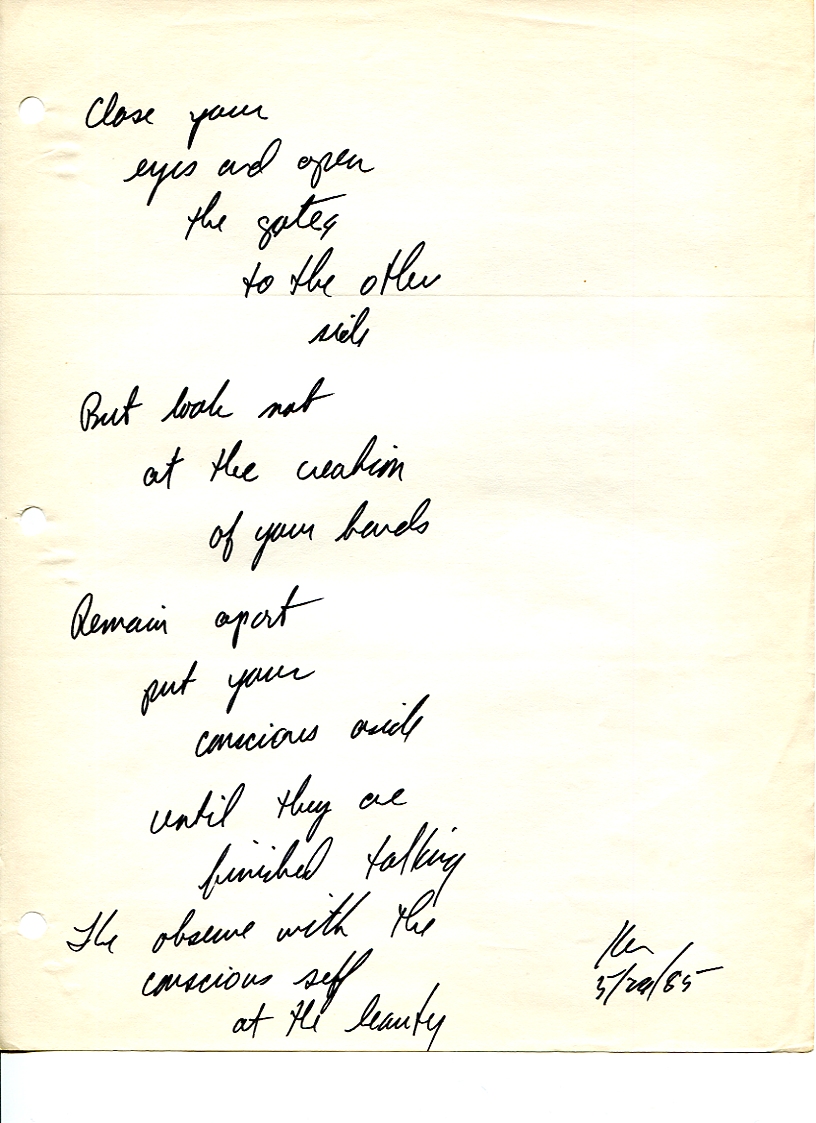 Close your
eyes and open
the gates
to the other
side
But look not
at the creation
of your hands
Remain apart
put your
conscious aside
until they are
finished talking
The observe with the
conscious self
at the beauty
Ken
5/29/85